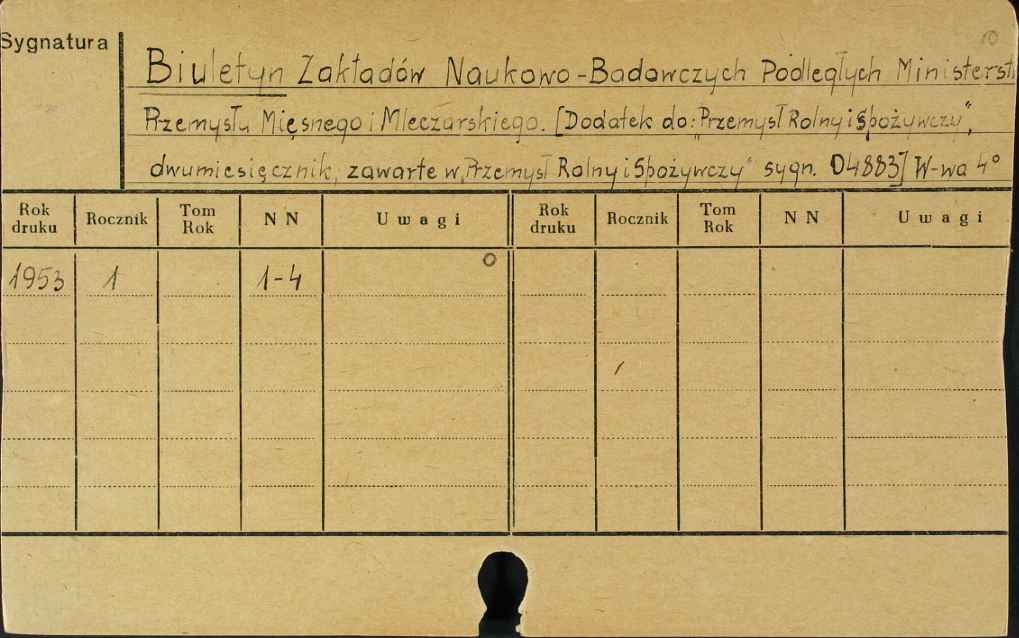 10
Sygnatura
Biuletyn Zakładów Naukowo-Badawczych Podległych Ministerst.
Przemysłu Mięsnego i Mleczarskiego. [Dodatek do: "Przemysł Rolny i Spożywczy",
dwumiesięcznik; zawarte w "Przemysł Rolny i Spożywczy" sygn. 04883] W-wa 4°
Rok druku Rocznik Tom Rok N N Uwagi Rok druku Rocznik Tom Rok N N Uwagi
1953 1 1-4